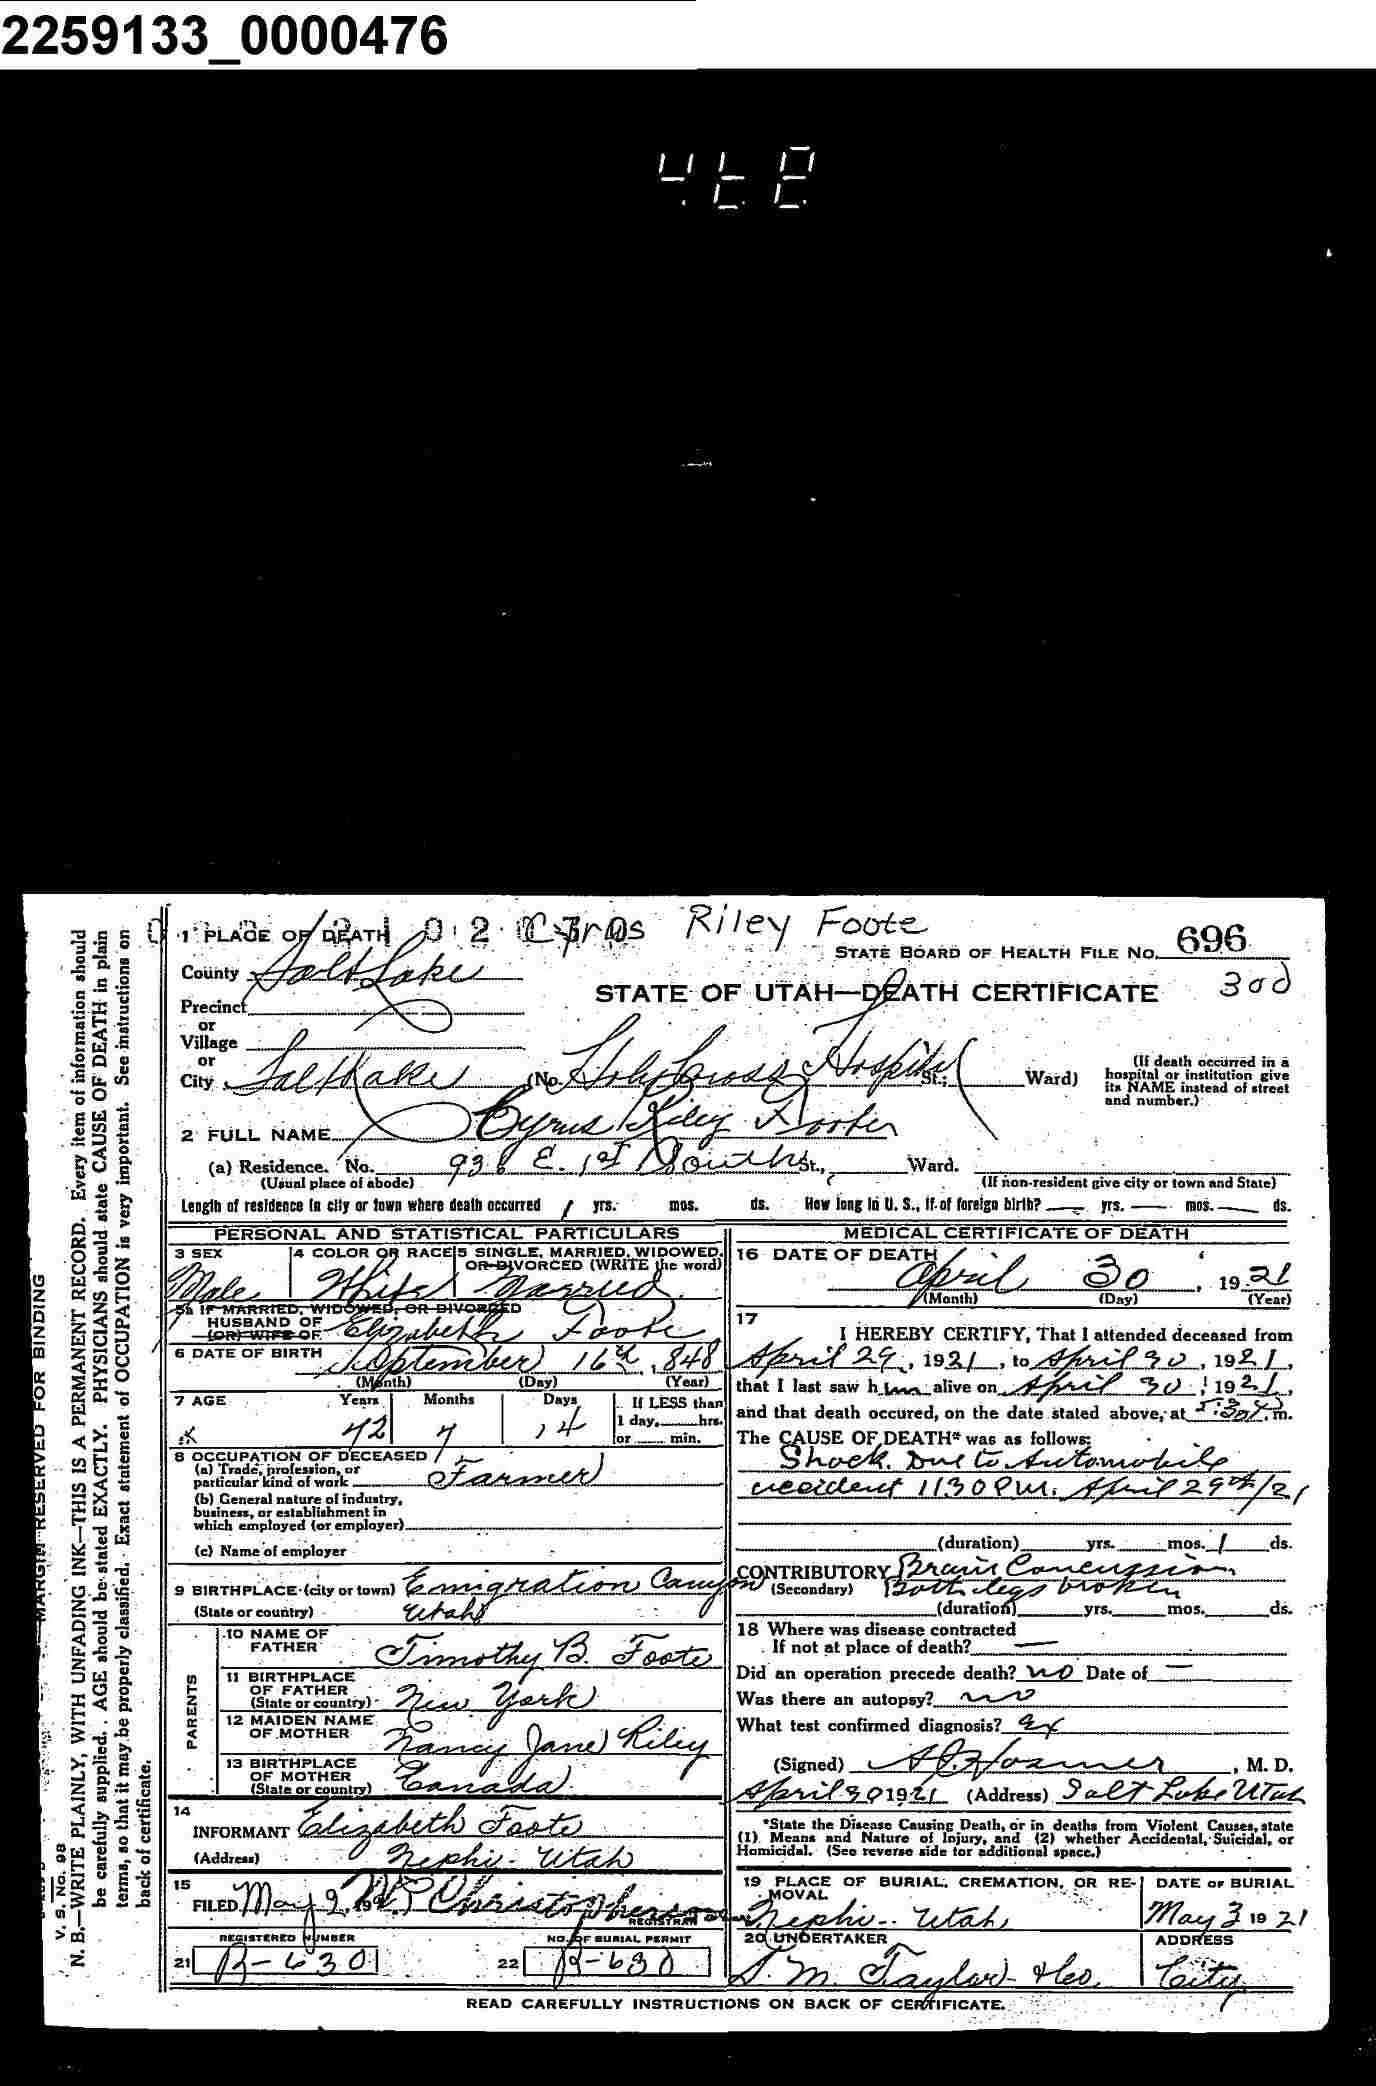 2259133_0000476
Cyrus Riley Foote
1 PLACE OF DEATH
STATE BOARD OF HEALTH FILE No. 696
County Salt Lake
300
STATE OF UTAH—DEATH CERTIFICATE
Precinct
or
Village
or
City Salt Lake (No. Holy Cross Hospital St.; Ward)
(If death occurred in a hospital or institution give its NAME instead of street and number.)
2 FULL NAME Cyrus Riley Foote
(a) Residence. No. 936 E. 1st South St., Ward.
(Usual place of abode) (If non-resident give city or town and State)
Length of residence in city or town where death occurred 1 yrs. mos. ds. How long in U. S., if of foreign birth? — yrs. — mos. — ds.
PERSONAL AND STATISTICAL PARTICULARS
3 SEX
Male
4 COLOR OR RACE
White
5 SINGLE, MARRIED, WIDOWED, OR DIVORCED (WRITE the word)
Married
5a IF MARRIED, WIDOWED, OR DIVORCED
HUSBAND OF
(OR) WIFE OF Elizabeth Foote
6 DATE OF BIRTH September 16th, 848
(Month) (Day) (Year)
7 AGE Years Months Days If LESS than
72 7 14 1 day, hrs.
or min.
8 OCCUPATION OF DECEASED
(a) Trade, profession, or
particular kind of work Farmer
(b) General nature of industry,
business, or establishment in
which employed (or employer)
(c) Name of employer
9 BIRTHPLACE (city or town) Emigration Canyon
(State or country) Utah
PARENTS
10 NAME OF
FATHER Timothy B. Foote
11 BIRTHPLACE
OF FATHER
(State or country) New York
12 MAIDEN NAME
OF MOTHER Nancy Jane Riley
13 BIRTHPLACE
OF MOTHER
(State or country) Canada
14
INFORMANT Elizabeth Foote
(Address) Nephi - Utah
15
FILED May 2, 19 Christopherson
REGISTRAR
REGISTERED NUMBER
21 B-630
NO. OF BURIAL PERMIT
22 B-630
MEDICAL CERTIFICATE OF DEATH
16 DATE OF DEATH
April 30, 1921
(Month) (Day) (Year)
17
I HEREBY CERTIFY, That I attended deceased from
April 29, 1921, to April 30, 1921,
that I last saw him alive on April 30, 1921,
and that death occured, on the date stated above, at 5:30 m.
The CAUSE OF DEATH* was as follows:
Shock. Due to Automobile
accident 11:30 P.M. April 29th/21
(duration) yrs. mos. 1 ds.
CONTRIBUTORY Brain Concussion
(Secondary) Both legs broken
(duration) yrs. mos. ds.
18 Where was disease contracted
If not at place of death? —
Did an operation precede death? no Date of —
Was there an autopsy? no
What test confirmed diagnosis?
(Signed) Hosmer, M. D.
April 30 1921 (Address) Salt Lake Utah
*State the Disease Causing Death, or in deaths from Violent Causes, state
(1) Means and Nature of Injury, and (2) whether Accidental, Suicidal, or
Homicidal. (See reverse side for additional space.)
19 PLACE OF BURIAL, CREMATION, OR REMOVAL
Nephi - Utah
DATE OF BURIAL
May 3 1921
20 UNDERTAKER
S. M. Taylor &Co.
ADDRESS
City
READ CAREFULLY INSTRUCTIONS ON BACK OF CERTIFICATE.
MARGIN RESERVED FOR BINDING
V. S. No. 98
N. B.—WRITE PLAINLY, WITH UNFADING INK—THIS IS A PERMANENT RECORD. Every item of information should
be carefully supplied. AGE should be stated EXACTLY. PHYSICIANS should state CAUSE OF DEATH in plain
terms, so that it may be properly classified. Exact statement of OCCUPATION is very important. See instructions on
back of certificate.